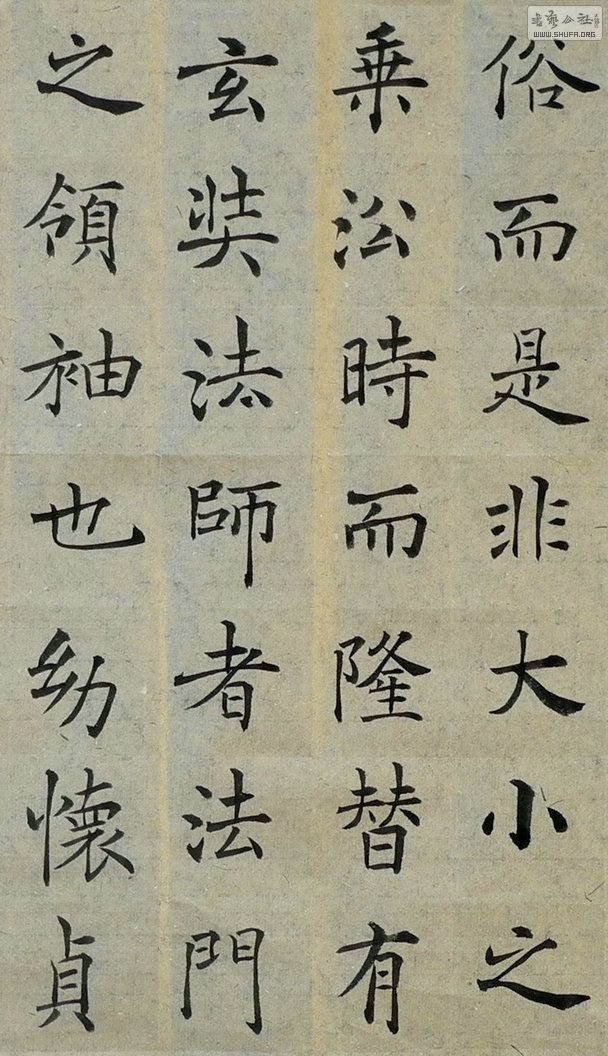 俗而是非大小之
乗㳂時而隆替有
玄奘法師者法門
之領袖也幼懐貞
書藝公社
WWW.SHUFA.ORG